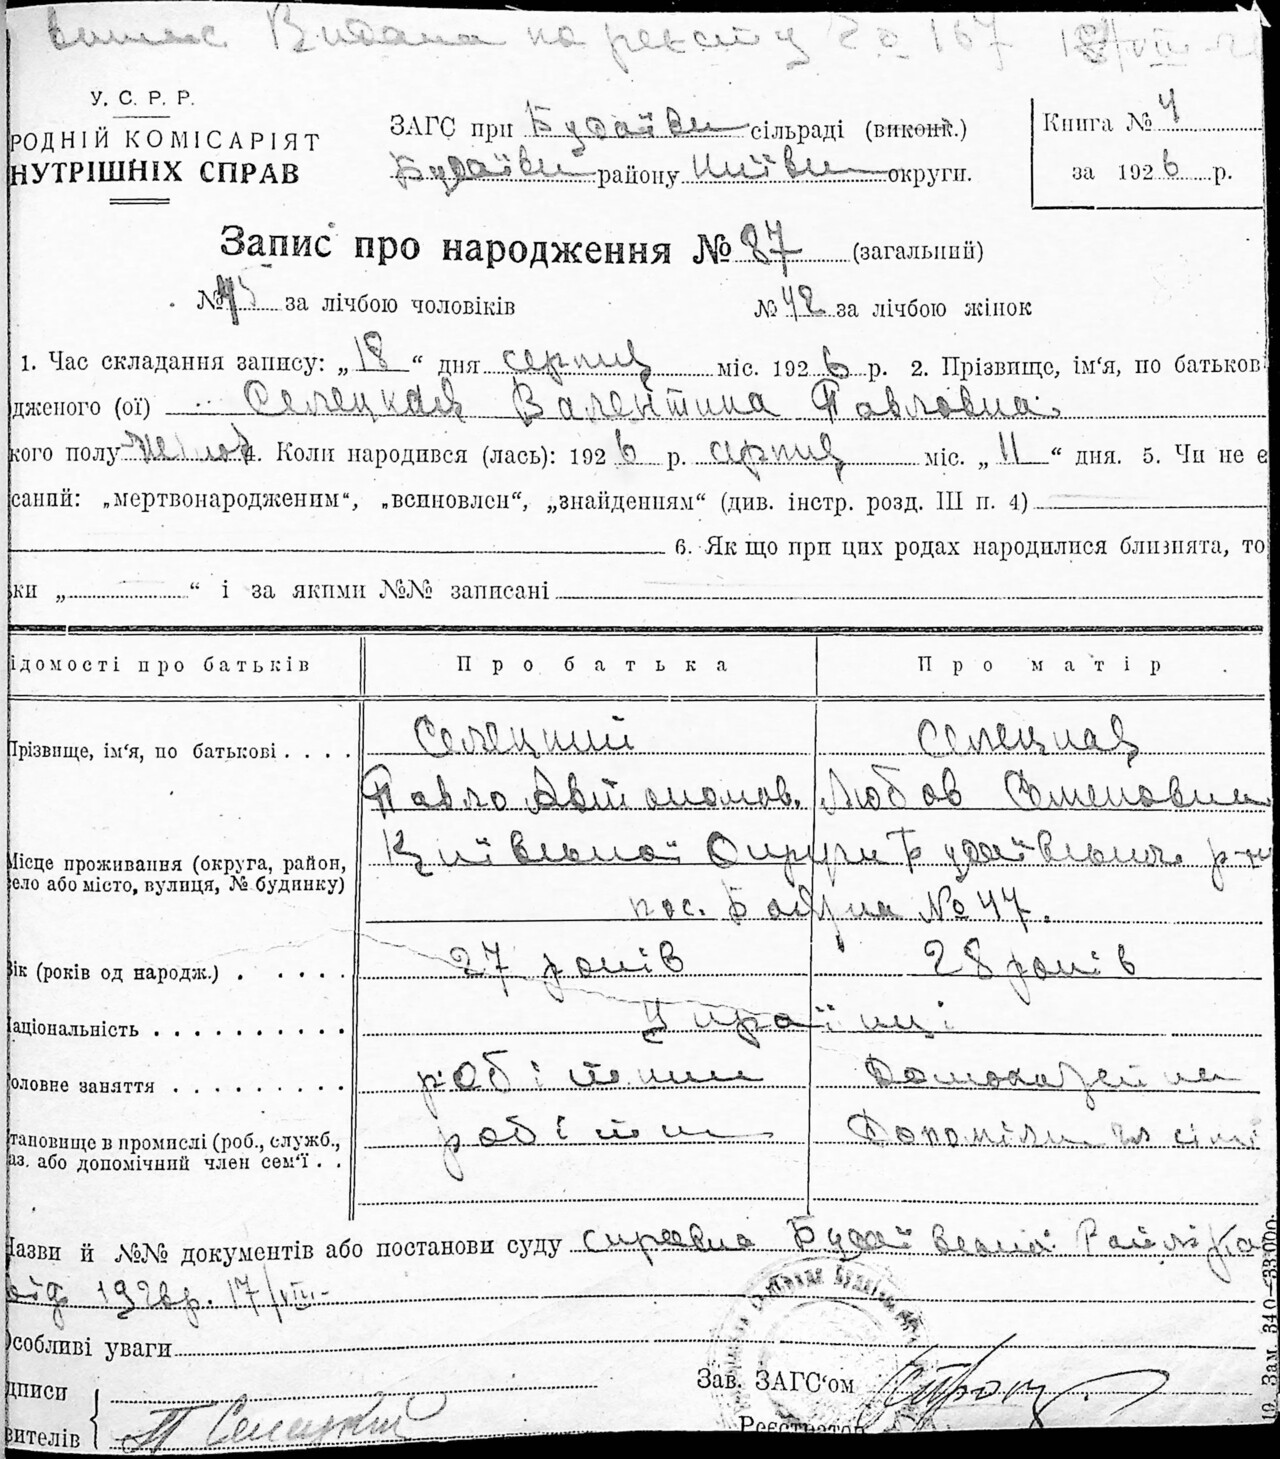 Видана по реєстру № 167
У. С. Р. Р.
РОДНІЙ КОМІСАРІЯТ
НУТРІШНІХ СПРАВ
ЗАГС при Будаївск сільраді (виконк.)
Будаївск району Київск округи.
Книга № 4
за 1926 р.
Запис про народження № 87 (загальний)
№ 45 за лічбою чоловіків
№ 42 за лічбою жінок
1. Час складання запису: „18“ дня серпня міс. 1926 р. 2. Прізвище, ім‘я, по батьков
дженого (ої) Селецкая Валентина Павловна.
кого полу 4. Коли народився (лась): 1926 р. серпня міс. „11“ дня. 5. Чи не є
саний: „мертвонародженим“, „всиновлен“, „знайденням“ (див. інстр. розд. III п. 4)
6. Як що при цих родах народилися близнята, то
ки „ “ і за якими №№ записані
ідомості про батьків
Про батька
Про матір
Прізвище, ім‘я, по батькові
Селецкий
Селецкая
Павло Автономов.
Любов Семеновна
Місце проживання (округа, район,
село або місто, вулиця, № будинку)
Київської Округи Будаївського р-ну
пос. Боярка № 47.
Вік (років од народж.)
27 років
28 років
Національність
Українці
Головне заняття
робітник
Домохазяйка
тановище в промислі (роб., служб.,
аз. або допомічний член сем‘ї
робітник
Допомічн чл сімї
Назви й №№ документів або постанови суду справка Будаївської
від 1926р. 17/VIII-
Особливі уваги
дписи
вителів
П Селецкий
Зав. ЗАГС‘ом
Реєстратор
10. Зам. 340—33.000.